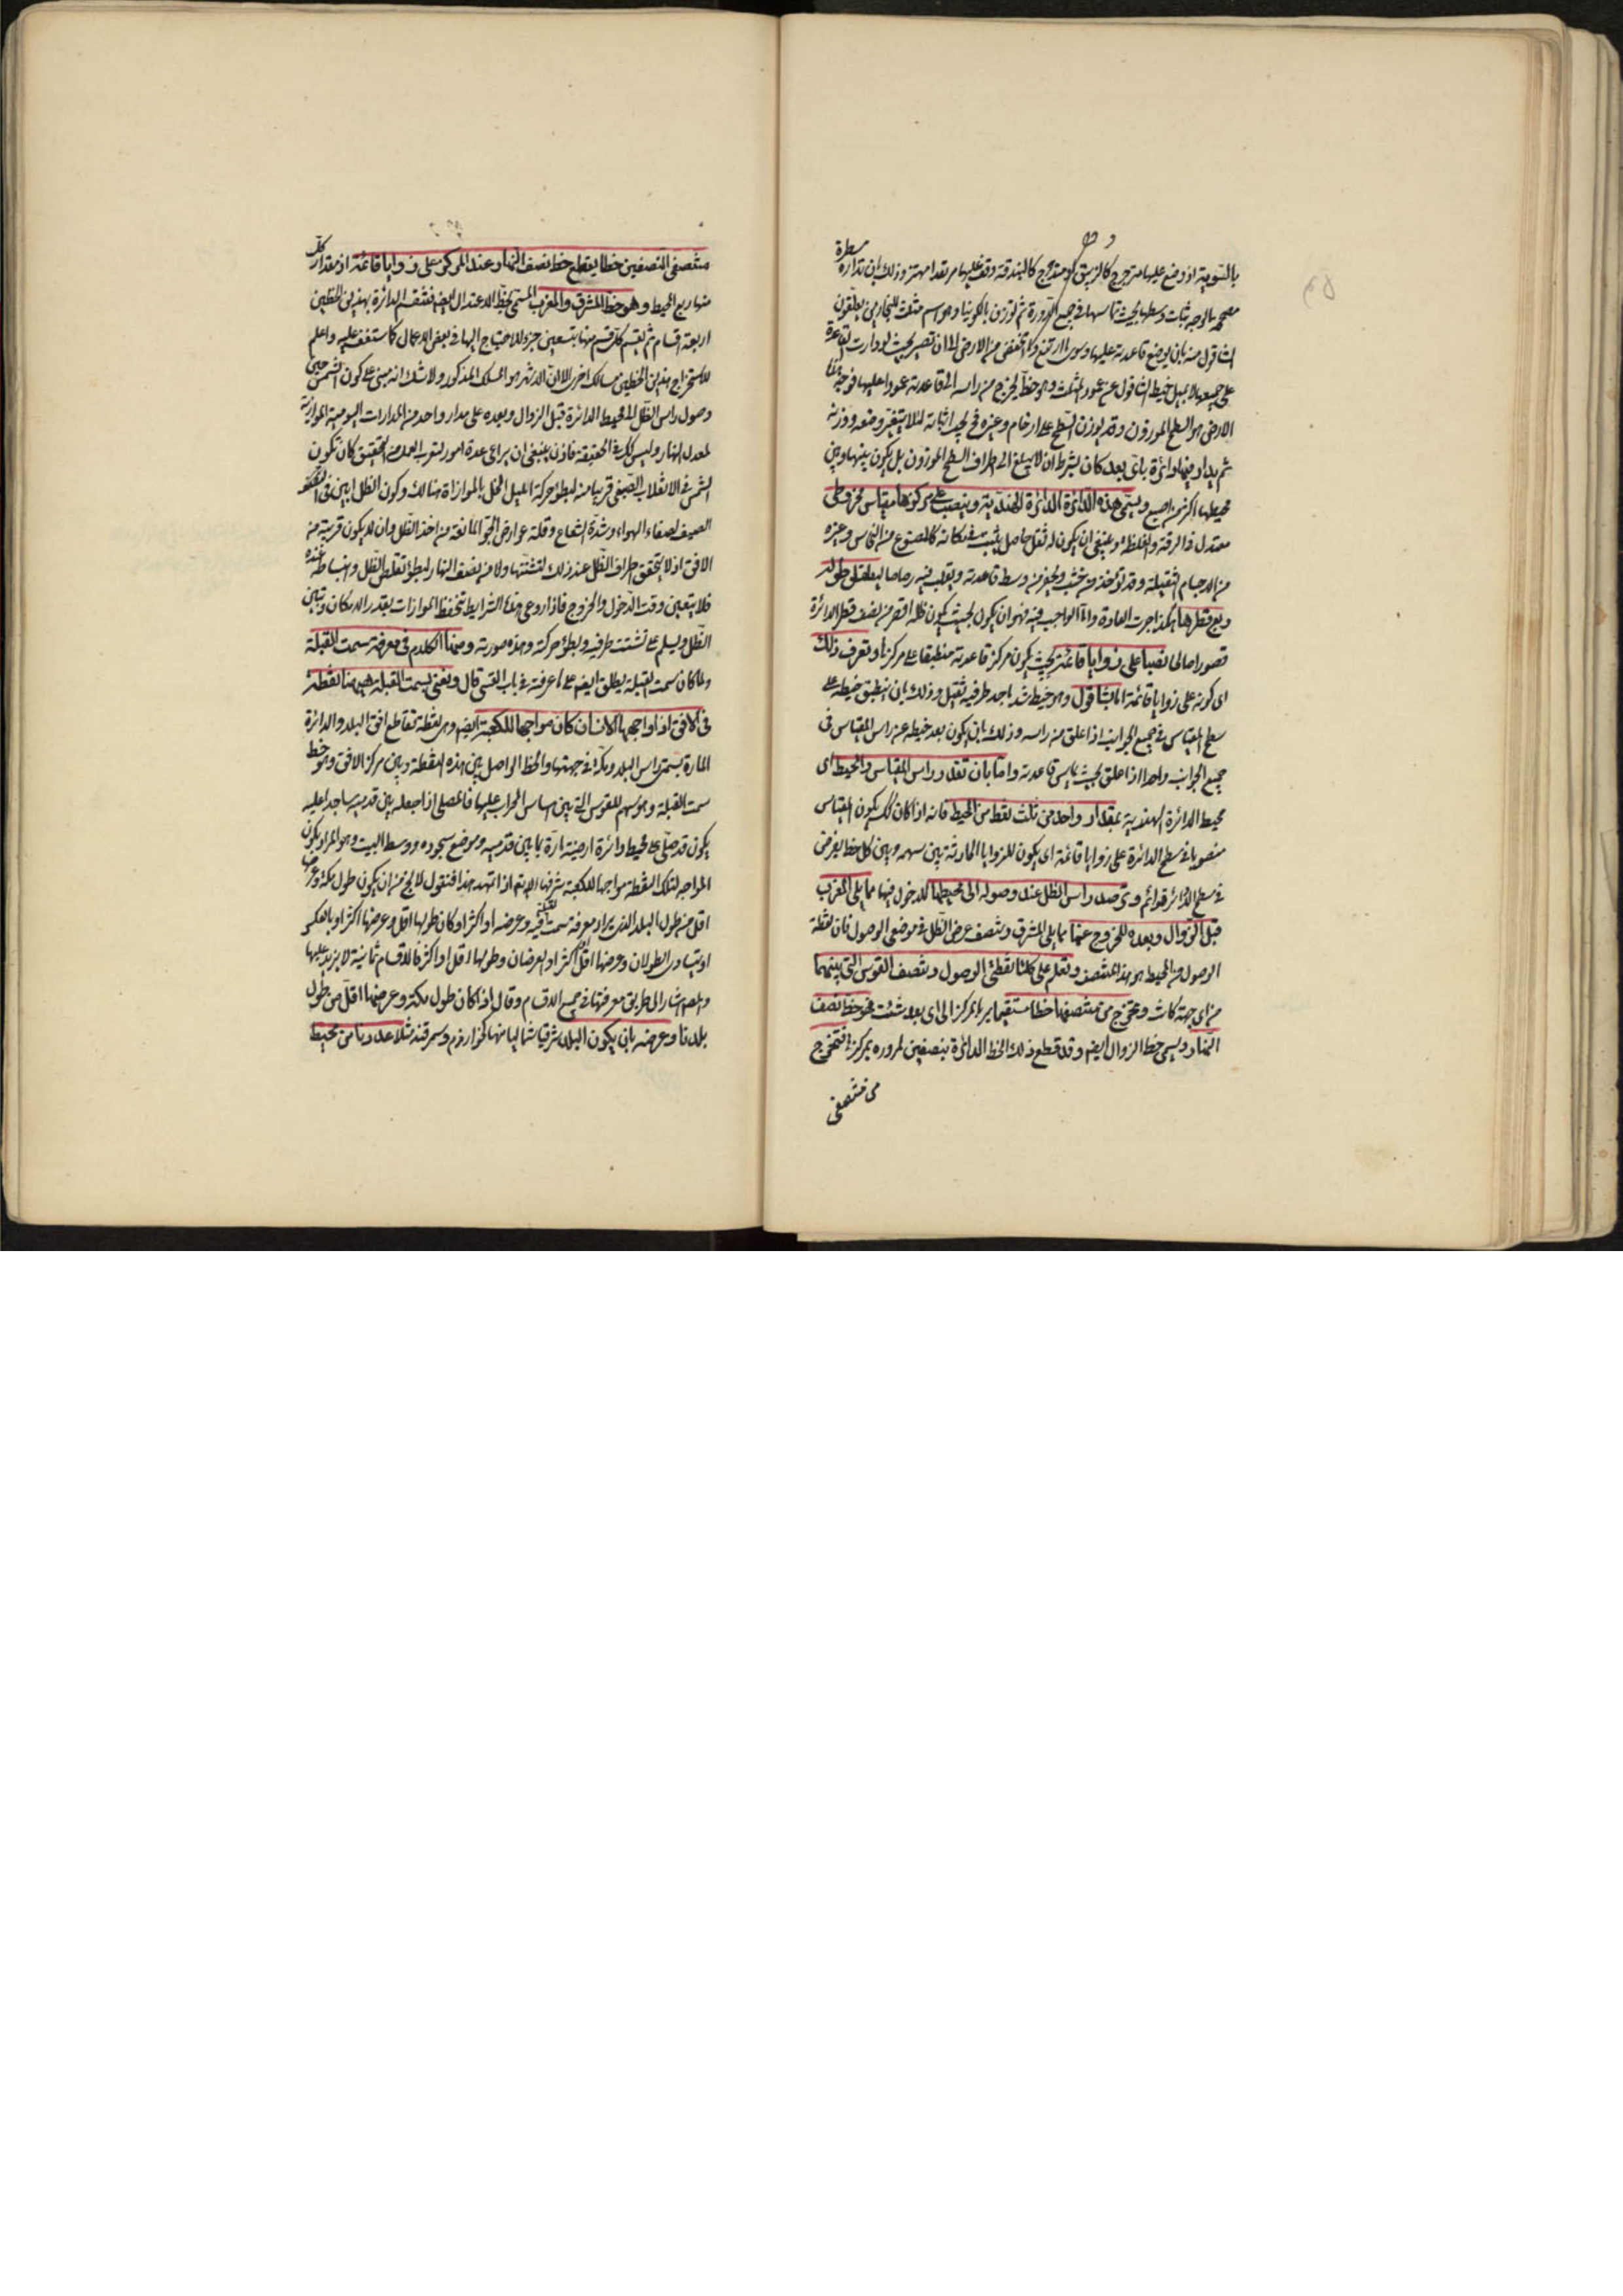 بالسوية اذ وضع عليها مترجرج كالزيبق او متدحرج كالبندقة وقف عليها مرتعدا مهتزا وذلك بان تدار مسطرة
مصححة بالوجه ثبات وسطها بحيث تماسها في جميع الدورة ثم توزن بالكونيا وهو اسم مثلث للنجارين يعلقون
الشاقول منه بان يوضع قاعدته عليها وسوى ما ارتفع وما انخفض من الارض الى ان تصير بحيث لو دارت القاعدة
على جميعها لا يميل خيط الشاقول عن عمود المثلث وهو خط يخرج من راسه الى قاعدته عمودا عليها فوجه
الارض هو السطح الموزون وقد يوزن السطح على رخام وغيره في يجب اثباته لئلا يتغير وضعه ووزنه
ثم يدار فيها دائرة باى بعد كان بشرط ان لا يبلغ الى اطراف السطح الموزون بل يكون بينها وبين
محيطها اكثر من اصبع ويسمى هذه الدائرة الدائرة الهندية وينصب على مركزها مقياس مخروطى
معتدل في الرقة والغلظ وينبغى ان يكون له ثقل حاصل يثبت في مكانه كالمصنوع من النحاس وغيره
من الاجسام الثقيلة وقد يؤخذ من خشب ويحفر من وسط قاعدته ويقلب فيه رصاصا ليعلق طوله
ربع قطرها هكذا جرت العادة واما الواجب فيه فهو ان يكون بحيث يكون ظله اقصر من نصف قطر الدائرة
نصبا على زوايا قائمة بحيث يكون مركز قاعدته منطبقا على مركزها ويعرف ذلك
اى كونه على زوايا قائمة اما بالشاقول وهو خيط شد باحد طرفيه ثقيل وذلك بان ينطبق خيطه على
سطح المقياس في جميع الجوانب اذا علق من راسه وذلك بان يكون بعد خيطه عن راس المقياس في
جميع الجوانب واحدا اذا علق بحيث يماس قاعدته واما بان تقدر راس المقياس والمحيط اى
محيط الدائرة الهندية بمقدار واحد من ثلث نقط من المحيط فانه اذا كان كك يكون المقياس
منصوبا في سطح الدائرة على زوايا قائمة اى يكون للزوايا الحادثة بين سهمه وبين كل خط يفرض
في سطح الدائرة قوائم وترصد راس الظل عند وصوله الى محيطها للدخول فيها مما يلى المغرب
قبل الزوال وبعده للخروج عنها مما يلى المشرق وينصف عرض الظل في موضعى الوصول فان نقطة
الوصول من المحيط هو هذا المنتصف وتعلم على كلتا نقطتى الوصول وينصف القوس التى بينهما
من اى جهة كانت ونخرج من منتصفها خطا مستقيما يمر بالمركز الى اى بعد شئت فهو خط نصف
النهار ويسمى خط الزوال ايضا وقد قطع ذلك الخط الدائرة بنصفين لمروره بمركزها فنخرج
من منتصفى
منتصفى النصفين خطا يقطع خط نصف النهار عند المركز على زوايا قائمة اذ مقدار كل
منها ربع المحيط وهو خط المشرق والمغرب المسمى بخط الاعتدال ايضا فنقسم الدائرة بهذين الخطين
اربعة اقسام ثم يقسم كل قسم منها بتسعين جزء للاحتياج اليها في بعض الاعمال كما ستقف عليه واعلم
لاستخراج هذين الخطين مسالك اخر الا ان الاشهر هو المسلك المذكور ولا شك انه مبنى على كون الشمس حين
وصول راس الظل الى محيط الدائرة قبل الزوال وبعده على مدار واحد من المدارات اليومية الموازية
لمعدل النهار وليس كك في الحقيقة فاذن ينبغى ان يراعى عدة امور لتقرب العمل من التحقيق كان تكون
الشمس في الانقلاب الصيفى او قريبا منه لبطؤ حركة الميل المخل بالموازاة هنالك وكون الظل ابين في
الصيف لصفاء الهواء وشدة الشعاع وقلة عوارض الجو المانعة من اخذ الظل وان لا يكون قريبة من
الافق اذ لا يتحقق اطراف الظل عند ذلك لتشتتها ولا من نصف النهار لبطؤ تقلص الظل وانبساطه عنده
فلا يتعين وقت الدخول والخروج فاذا روعى هذه الشرايط تتحفظ الموازات بقدر الامكان وتبين
الظل ويسلم عن تشتت طرفيه وبطؤ حركته وهذه صورته وضمنا الكلام في معرفة سمت القبلة
ولما كان سمت القبلة يطلق ايضا على ما عرفته في باب القسى قال ونعنى بسمت القبلة ههنا نقطة
في الافق اذا واجهها الانسان كان مواجها للكعبة ايضا وهى نقطة تقاطع افق البلد والدائرة
المارة بسمتى راس البلد ومكة في جهتها والخط الواصل بين هذه النقطة وبين مركز الافق وهو خط
سمت القبلة وهو سهم للقوس التى بين اساس المحراب عليها فالمصلى اذا جعله بين قدميه ساجدا عليه
يكون قد صلى على محيط دائرة ارضية مارة بما بين قدميه وموضع سجوده ووسط البيت وهو المراد بكون
المواجه لتلك النقطة مواجها للكعبة شرفها الله تعالى اذا تمهد هذا فنقول لا يخ من ان يكون طول مكة وعرضها
اقل من طول البلد الذى يراد معرفة سمت القبلة فيه وعرضه او اكثر او كان طولها اقل وعرضها اكثر او بالعكس
او يتساوى الطولان وعرضها اقل او اكثر او العرضان وطولها اقل او اكثر فالاقسام ثمانية لا يزيد عليها
والمص اشار الى طريق معرفتها في جميع الاقسام وقال اذا كان طول مكة وعرضها اقل من طول
بلدنا وعرضه بان يكون البلد شرقيا شماليا منها كخوارزم وسمرقند مثلا عددنا من محيط